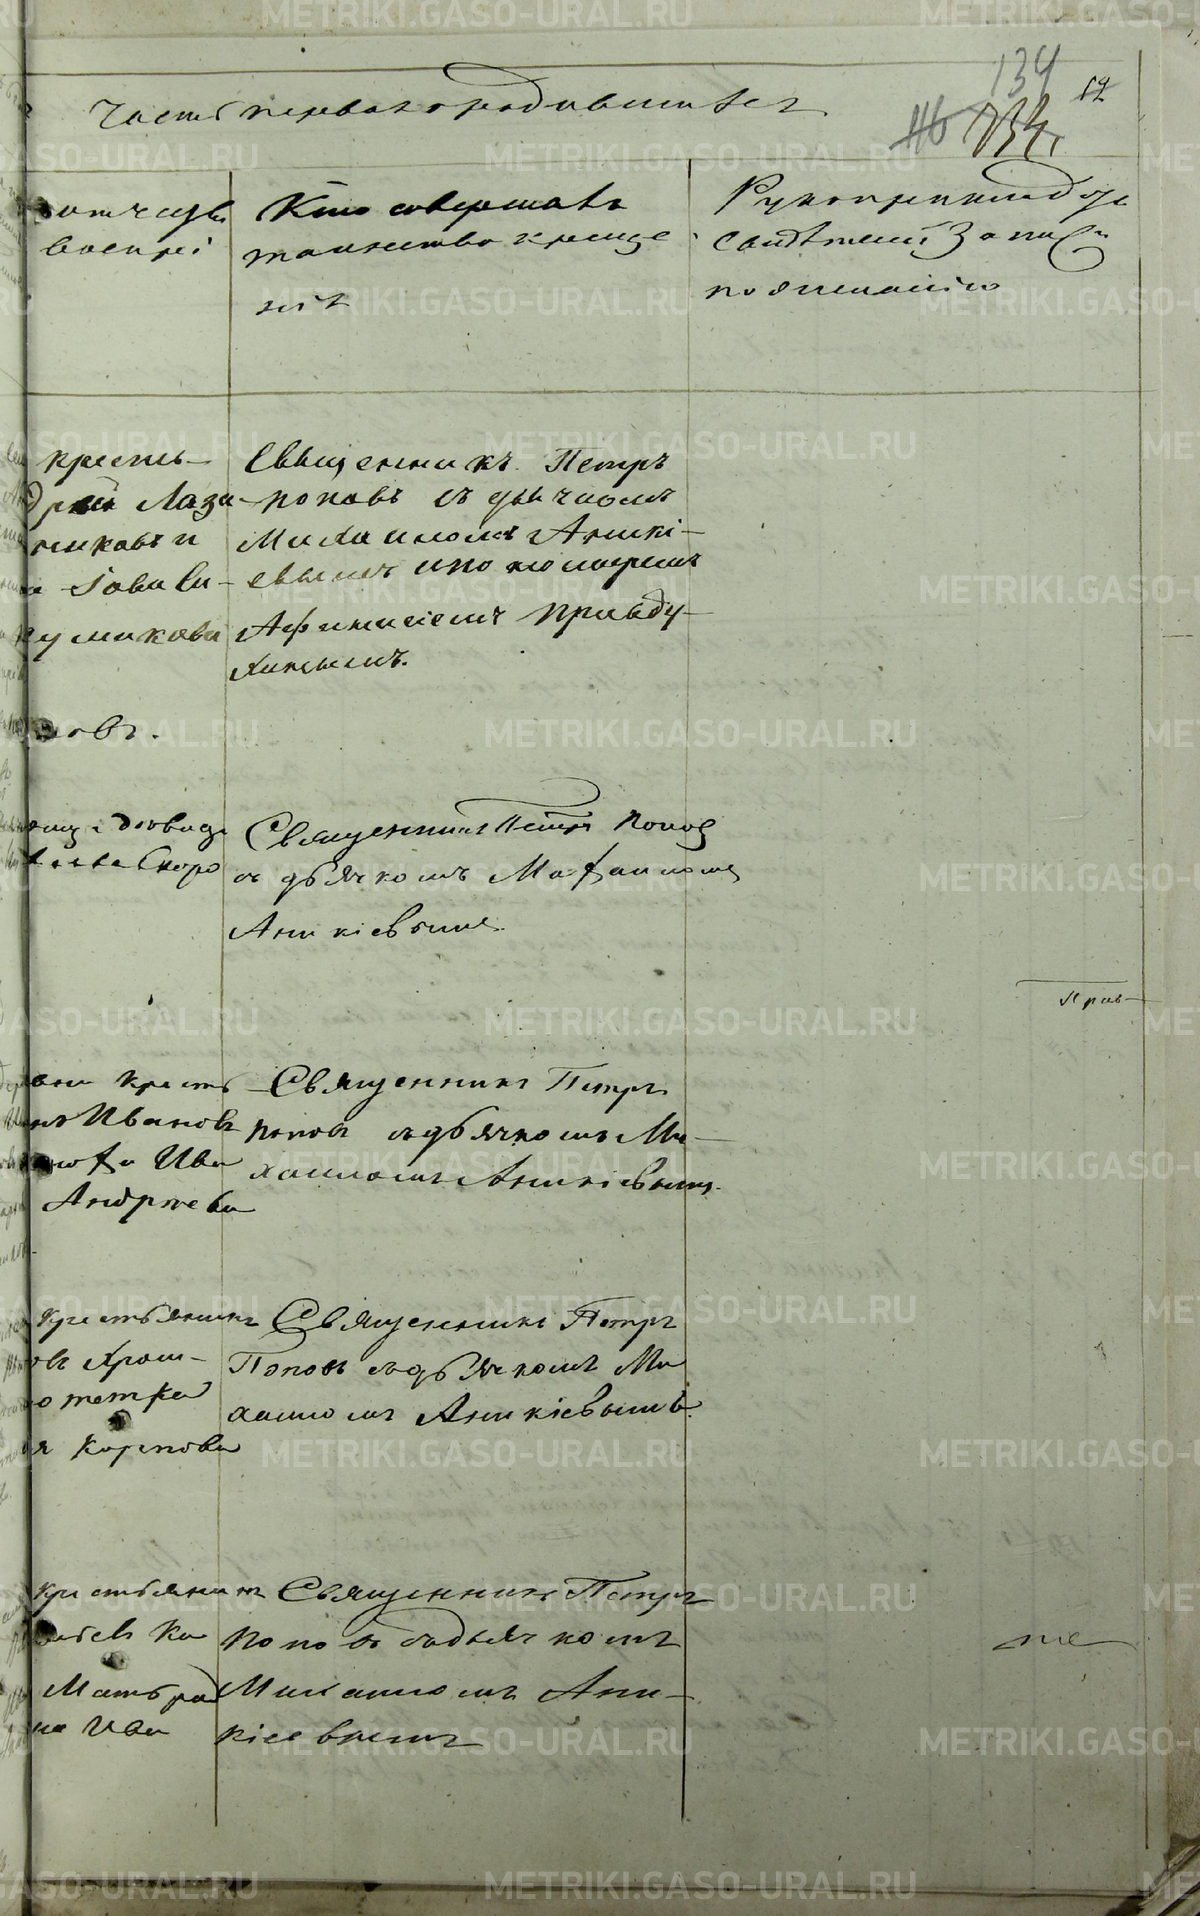 134
19
116 134
Часть первая о родившихся
отчество
воспрі
Кто совершалъ
таинство креще
нія
Рукоприкладст
свидѣтелей Записи
по желанію
кресть-
Лаза-
никовъ и
Сави-
Куликова
Священникъ Петръ
Поповъ съ дьячкомъ
Михаиломъ Аникі-
евымъ и пономаремъ
Афанасіемъ Правду-
хинымъ.
овъ.
Скоро
Священникъ Петръ Попов
съ дьячкомъ Михаиломъ
Аникіевымъ.
Кресть
Ивановъ
Ива
Андреева
Священникъ Петръ
Поповъ съ дьячкомъ Ми-
хаиломъ Аникіевымъ.
Прав-
крестьянинъ
овъ Хром-
тетка
я Карпова
Священникъ Петръ
Поповъ съ дьячкомъ Ми
хаиломъ Аникіевымъ.
крестьянинъ
Ка
Матьро
на Ива
Священникъ Петръ
Поповъ съ дьячкомъ
Михаиломъ Ани-
кіевымъ
METRIKI.GASO-URAL.RU